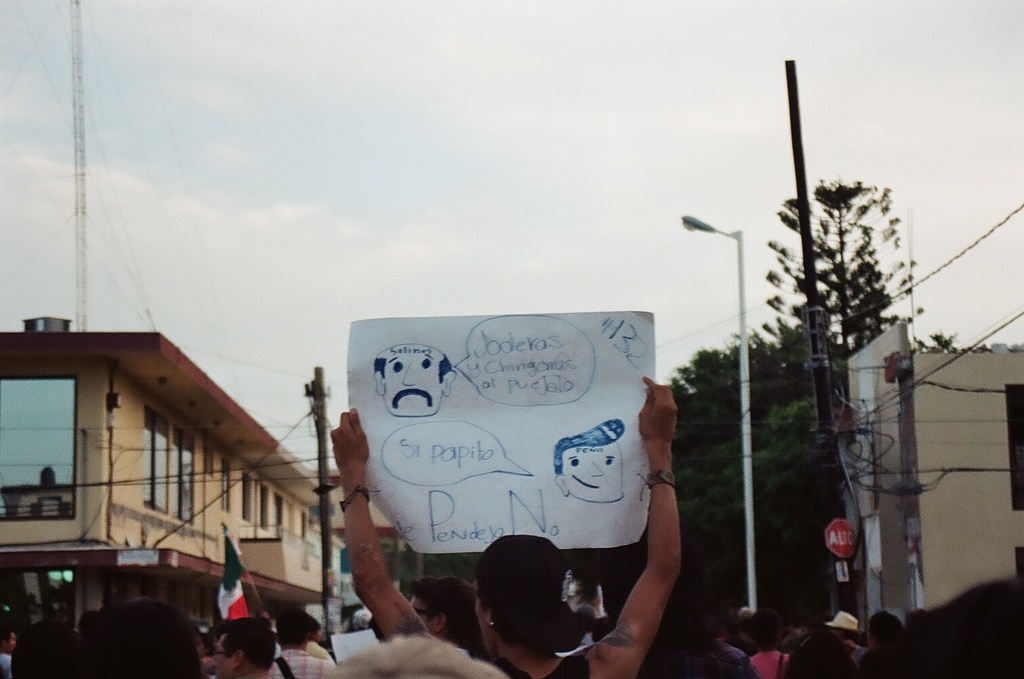 #132
Salinas
Joderas
y chingaras
al pueblo
Si papito
PEÑO
de PendejoNo
ALTO